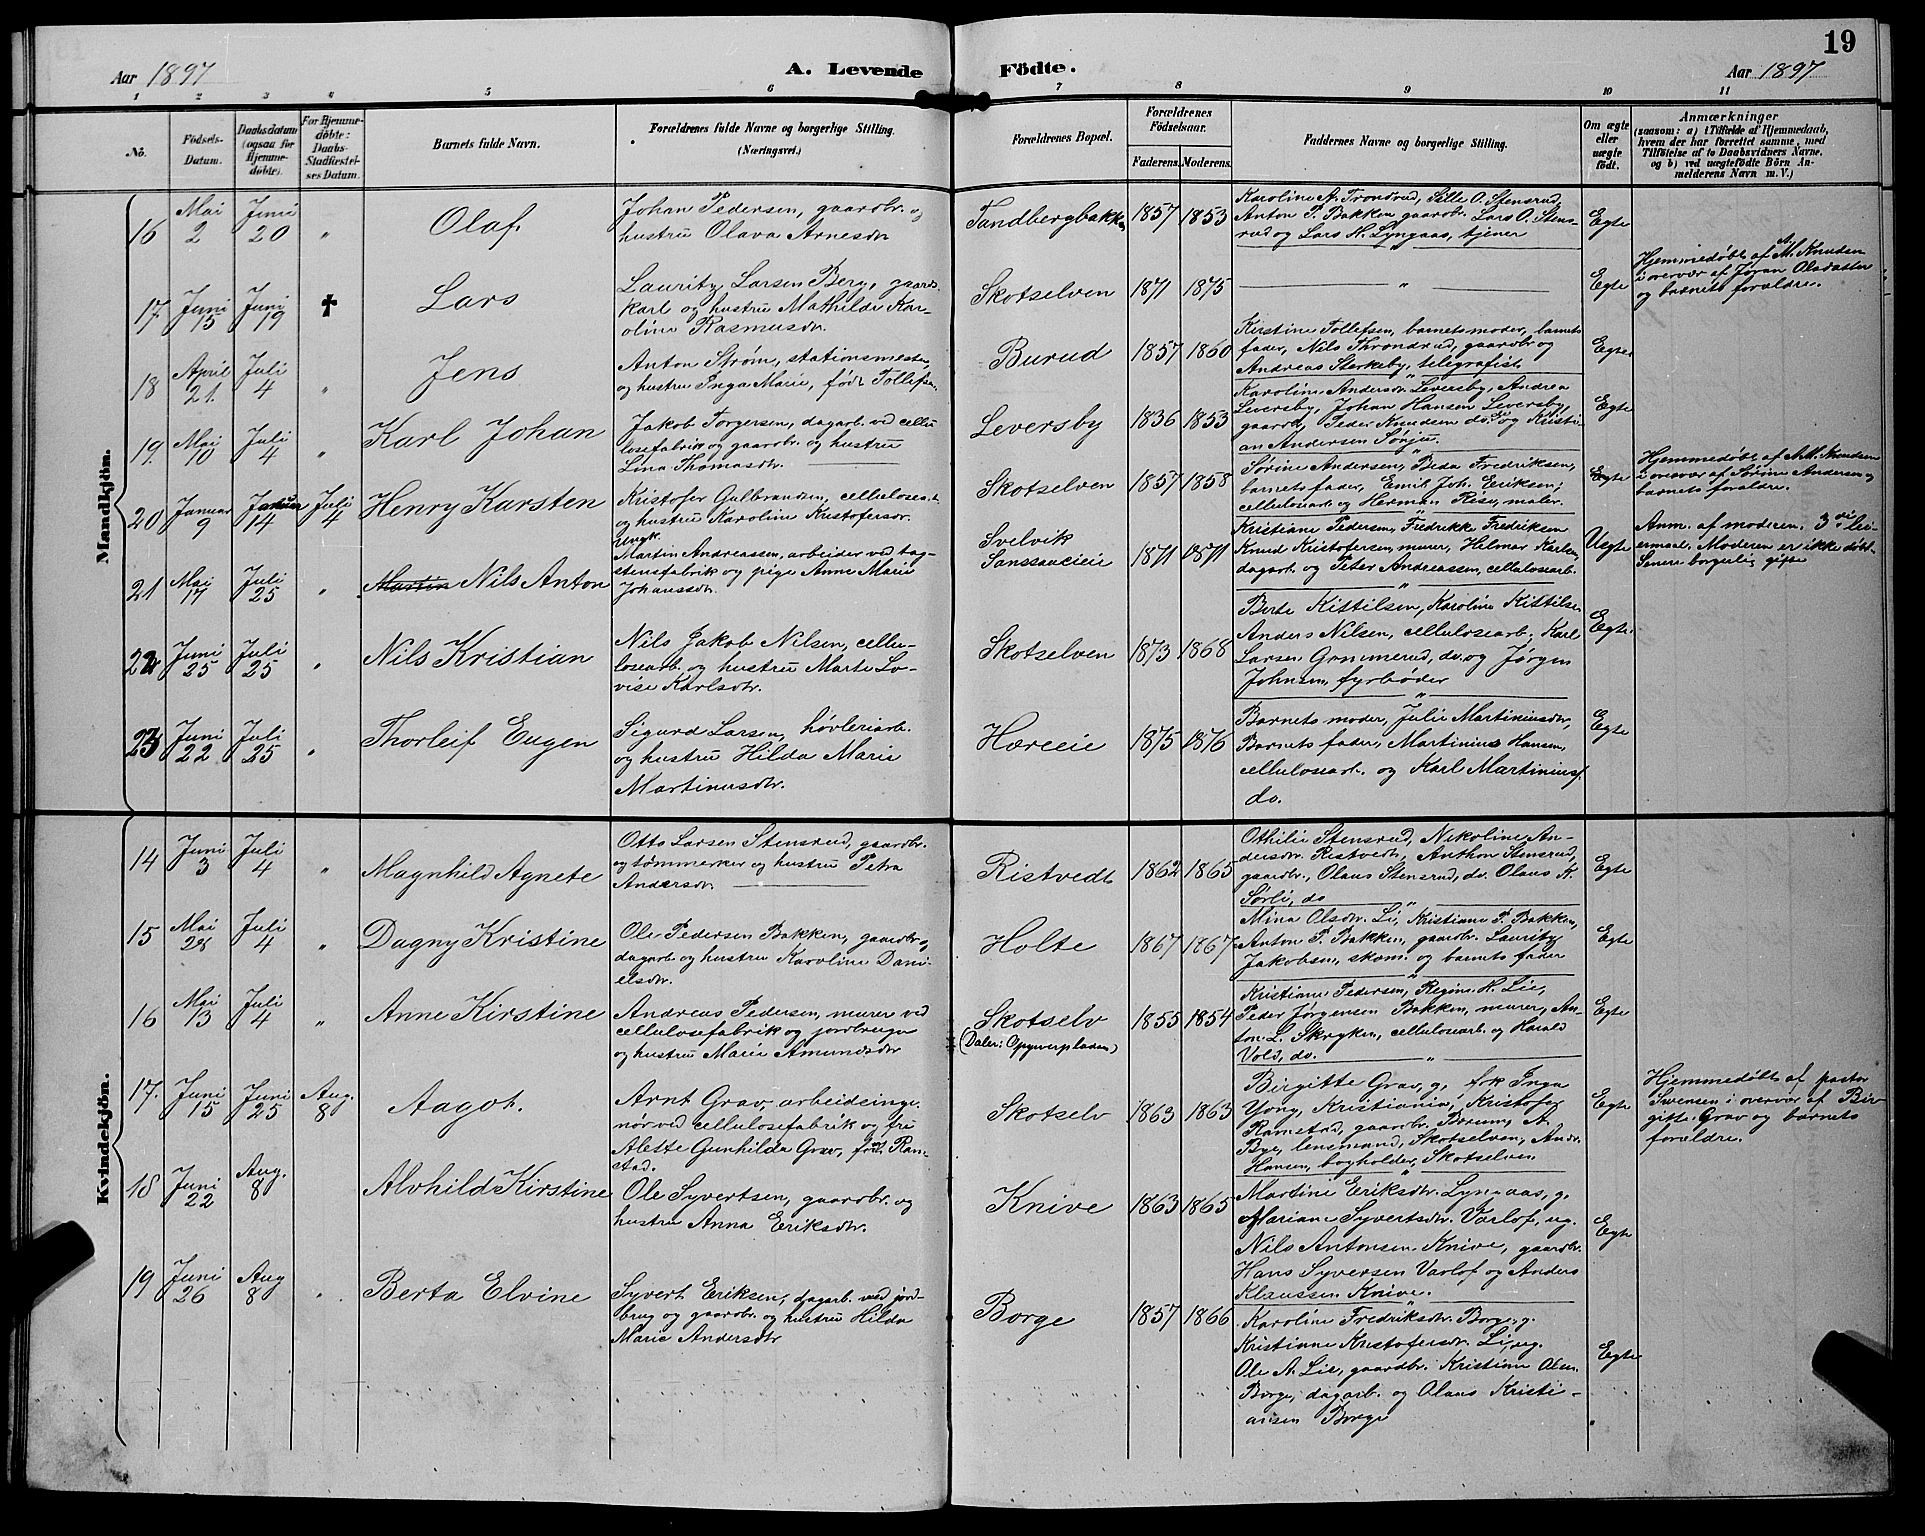 19
Aar 1897
A. Levende Födte.
Aar 1897
1 2 3 4 5 6 7 8 9 10 11
No.
Födsels-Datum.
Daabsdatum (ogsaa for Hjemmedöbte).
For Hjemmedöbte: Daabs-Stadfæstelses Datum.
Barnets fulde Navn.
Forældrenes fulde Navne og borgerlige Stilling.
(Næringsvei.)
Forældrenes Bopæl.
Forældrenes Födselsaar.
Faderens. Moderens.
Faddernes Navne og borgerlige Stilling.
Om ægte eller uægte födt.
Anmærkninger
(saasom: a) i Tilfælde af Hjemmedaab, hvem der har forrettet samme, med Tilföielse af to Daabsvidners Navne, og b) ved uægtefödte Börn Anmelderens Navn m. V.)
Mandkjön.
16 Mai 2 Juni 20 " Olaf
Johan Pedersen, gaardbr. og
hustru Olava Arnesdtr
Tandbergbakken 1857 1853
Karoline A. Trondrud, Sille O. Stensrud,
Anton P. Bakken gaardbr. Lars O. Stens-
rud og Lars H. Lyngaas, tjener
Egte
17. Juni 15 Juni 19 † Lars
Lauritz Larsen Berg, gaards-
karl og hustru Mathilde Kar-
oline Rasmusdtr.
Skotselven 1871 1875
"
Egte
Hjemmedøbt af A. M. Knudsen
i overvær af Jøran Olsdatter
og barnets forældre.
18 April 21. Juli 4 " Jens
Anton Strøm, stationsmester,
og hustru Inga Marie, født Tollefsen
Burud 1857 1860
Kirstine Tollefsen, barnets moder, barnets
fader, Nils Throndrud, gaardbr og
Andreas Sterkeby, telegrafist
Egte
19. Mai 10 Juli 4 " Karl Johan
Jakob Torgersen, dagarb. ved cellu
losefabrik og gaardbr. og hustru
Lina Thomasdtr.
Leversby 1836 1853
Karoline Andersdtr Leversby, Andrea
Leversby, Johan Hansen Leversby,
gaardbr, Peder Knudsen do. og Kristi-
an Andersen Sønju.
Egte
20 Januar 9 Januar 14 Juli 4 Henry Karsten
Kristofer Gulbrandsen, cellulosearb.
og hustru Karoline Kristofersdr.
Skotselven 1857 1858
Sørine Andersen, Beda Fredriksen,
barnets fader, Emil Joh. Eriksen,
cellulosearb og Herman Rise, maler.
Egte
Hjemmedøbt af A.M. Knudsen
i overvær af Sørine Andersen og
barnets forældre.
21 Mai 17 Juli 25 " Martin Nils Anton
ungk.
Martin Andreassen, arbeider ved tag-
stensfabrik og pige Anne Marie
Johansdtr.
Svelvik
Sanssouceie 1871 1871
Kristiane Pedersen, Fredrikke Fredriksen
Knud Kristofersen, murer, Helmar Karlsen,
dagarb. og Peter Andreassen, cellulosearb.
Uegte
Anm. af moderen. 3die lei-
ermaal. Moderen er ikke døbt.
Senere borgerlig gifte
22 Juni 25 Juli 25 " Nils Kristian
Nils Jakob Nilsen, cellu-
losearb. og hustru Marte Lo-
vise Karlsdtr.
Skotselven 1873 1868
Berte Kittilsen, Karoline Kittilsen
Anders Nilsen, cellulosearb., Karl
Larsen Grønnerud, do. og Jørgen
Johnsen, fyrbøder
Egte.
23 Juni 22 Juli 25 " Thorleif Eugen
Sigurd Larsen, høvleriarb.
og hustru Hilda Marie
Martinusdtr.
Horeeie 1875 1876
Barnets moder, Julie Martiniusdtr,
Barnets fader, Martinius Hansen,
cellulosearb. og Karl Martinius.
do.
Egte
Kvindekjön.
14 Juni 3 Juli 4 " Magnhild Agnete
Otto Larsen Stensrud, gaardbr.
og tømmerker og hustru Petra
Andersdtr.
Ristvedt 1862 1865
Othilie Stensrud, Nikoline An-
dersdtr. Ristvedt, Anthon Stensrud,
gaardbr., Olaus Stensrud, do. Olaus K.
Sørli, do
Egte
15 Mai 28 Juli 4 " Dagny Kristine
Ole Pedersen Bakken, gaardbr,
dagarb. og hustru Karoline Dani-
elsdtr.
Holte 1867 1867
Mina Olsdtr. Li, Kristiane P. Bakken,
Anton P. Bakken, gaardbr. Lauritz
Jakobsen, skom. og barnets fader
Egte
16 Mai 13 Juli 4 " Anne Kirstine
Andreas Pedersen, murer ved
cellulosefabrik og jordbruger
og hustru Marie Amundsdtr
Skotselv 1855 1854
Kristiane Pedersen, Regine H. Lie,
Peder Jørgensen Bakken, murer, An-
ton L. Skrykken, cellulosearb. og Harald
Vold, do.
Egte
17. Juni 15 Juni 25 Aug. 8 Aagot.
Arnt Grav, arbeidsinge-
nør ved cellulosefabrik og fru
Alette Gunhilda Grav, født Ram-
stad.
Skotselv 1863 1863
Birgitte Grav, g, frk Inga
Yong, Kristiania, Kristofer
Ramstad, gaardbr. Bærum, A.
Bye, lensmand, Skotselven, Andr.
Hansen, bogholder, Skotselven
Egte
Hjemmedøbt af pastor
Svensen i overvær af Bir
gitte Grav og barnets
forældre.
18 Juni 22 Aug. 8 Alvhild Kirstine
Ole Syvertsen, gaardbr. og
hustru Anna Eriksdtr.
Knive 1863 1865
Martine Eriksdtr. Lyngaas, g.
Mariane Syvertsdtr. Varlof, ug.
Nils Antonsen Knive, gaardbr.
Hans Syversen Varlof og Anders
Klaussen Knive.
Egte
19 Juni 26 Aug 8 " Berta Elvine
Syvert Eriksen, dagarb. med jord-
brug og gaardbr. og hustru Hilda
Marie Andersdtr
Borge 1857 1866
Karoline Fredriksdtr. Borge, g.
Kristiane Kristofersdtr. Li, ug.
Ole A. Lie, gaardbr. Kristian Olsen
Borge, dagarb. og Olaus Kristi-
ansen Borge
Egte